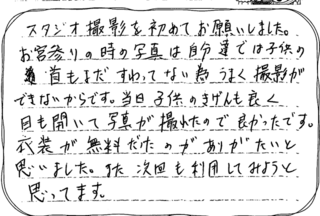 スタジオ撮影を初めてお願いしました。
お宮参りの時の写真は自分達では子供の
首もまだすわってない為うまく撮影が
できないからです。当日子供のきげんも良く
目も開いて写真が撮れたので良かったです。
衣装が無料だたのがありがたいと
思いました。また次回も利用してみようと
思ってます。